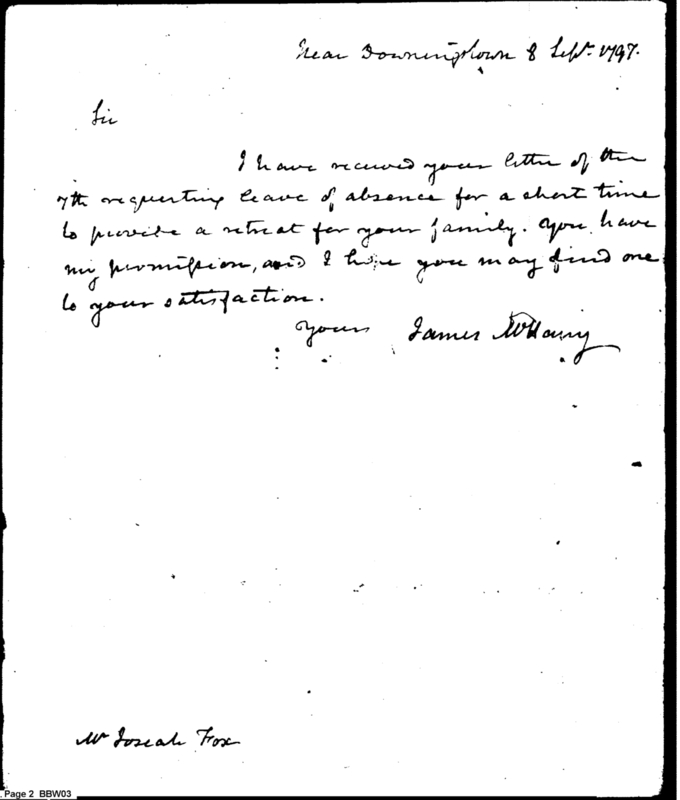 Near Downingtown 8 Sept. 1797.
Sir
I have received your letter of the
7th requesting leave of absence for a short time
to provide a retreat for your family. You have
my permission, and I hope you may find one
to your satisfaction.
Yours James McHenry
Mr Josiah Fox
Page 2 BBW03